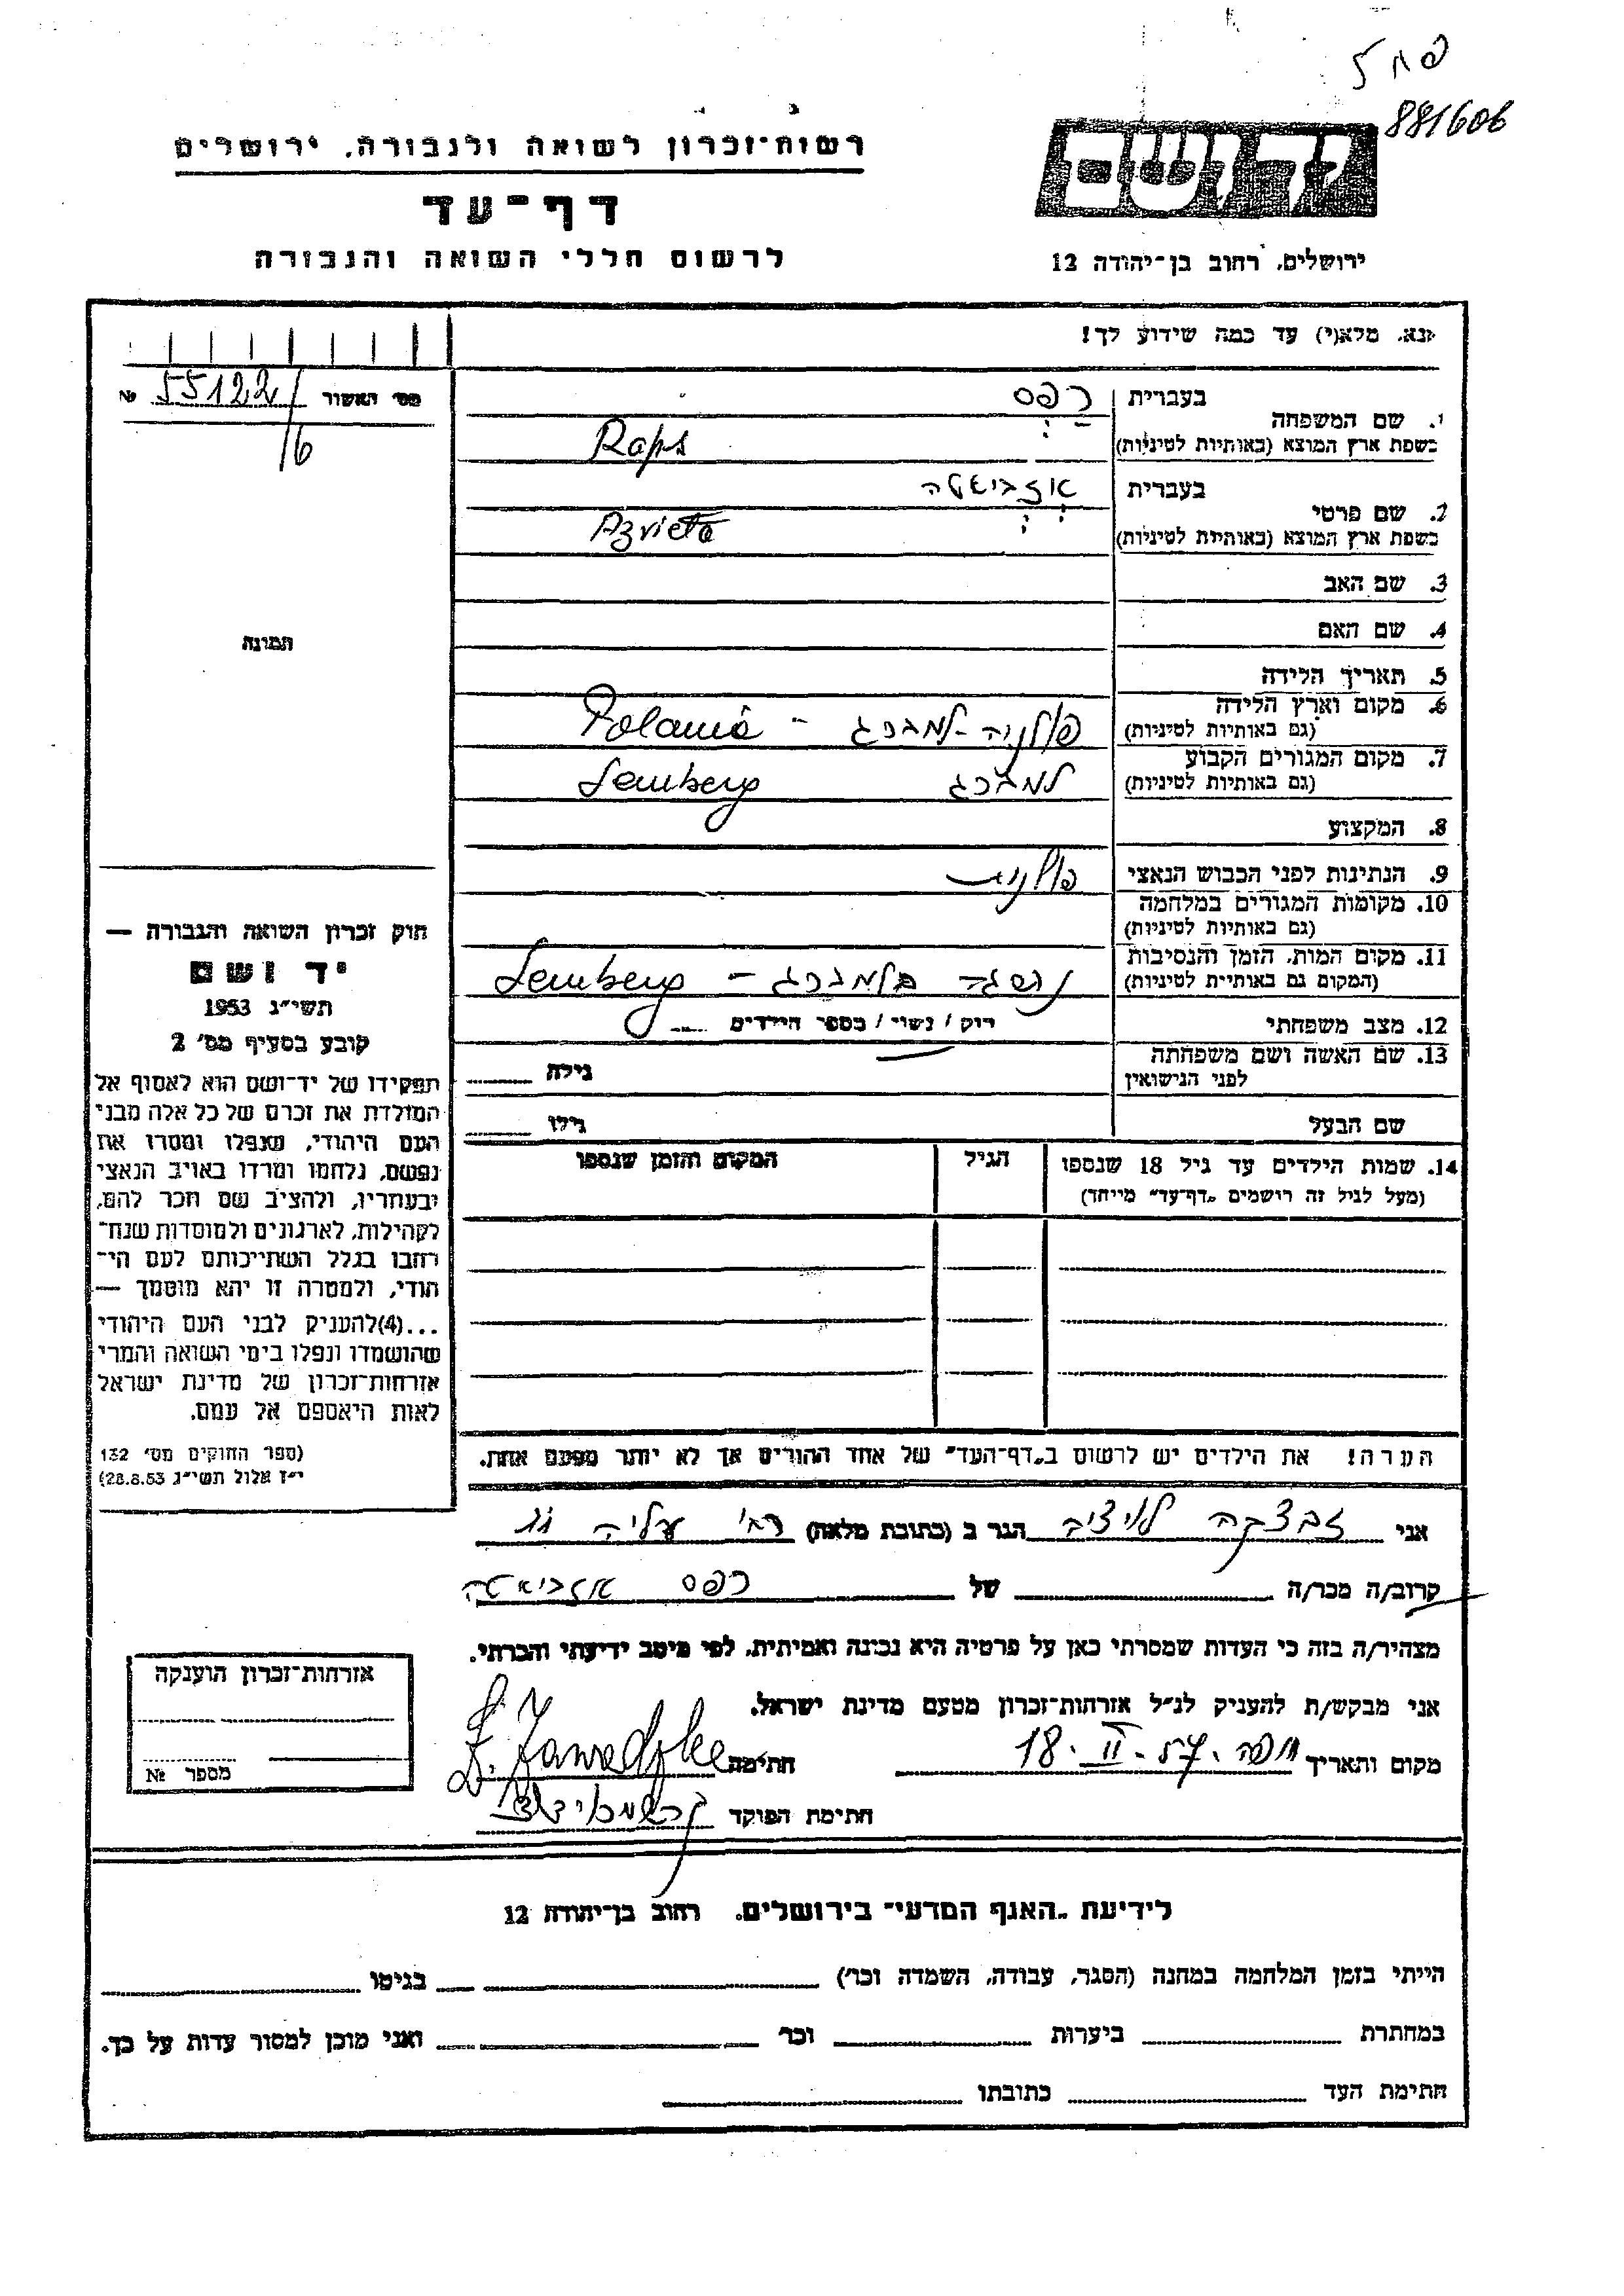 881606
רשות־זכרון לשואה ולגבורה, ירושלים
דף־עד
לרשום חללי השואה והגבורה
ירושלים, רחוב בן־יהודה 12
נא, מלא(י) עד כמה שידוע לך!
מס׳ האשור 55122/ №
16
1. שם המשפחה
בעברית רפס
בשפת ארץ המוצא (באותיות לטיניות) Raps
2. שם פרטי
בעברית אזביאטה
בשפת ארץ המוצא (באותיות לטיניות) Azvieta
3. שם האב
4. שם האם
תמונה
5. תאריך הלידה
6. מקום וארץ הלידה פולניה-למברג - Polania
(גם באותיות לטיניות)
7. מקום המגורים הקבוע למברג Lemberg
(גם באותיות לטיניות)
8. המקצוע
9. הנתינות לפני הכבוש הנאצי פולנית
10. מקומות המגורים במלחמה
(גם באותיות לטיניות)
11. מקום המות, הזמן והנסיבות נספגה בלמברג - Lemberg
(המקום גם באותיות לטיניות)
12. מצב משפחתי רוק / נשוי / מספר הילדים
13. שם האשה ושם משפחתה
לפני הנישואין גילה
שם הבעל גילו
14. שמות הילדים עד גיל 18 שנספו הגיל המקום והזמן שנספו
(מעל לגיל זה רושמים „דף־עד״ מייחד)
הערה! את הילדים יש לרשום ב„דף־העד״ של אחד ההורים אך לא יותר מפעם אחת.
חוק זכרון השואה והגבורה —
יד ושם
תשי״ג 1953
קובע בסעיף מס׳ 2
תפקידו של יד־ושם הוא לאסוף אל
המולדת את זכרם של כל אלה מבני
העם היהודי, שנפלו ומסרו את
נפשם, נלחמו ומרדו באויב הנאצי
ובעוזריו, ולהציב שם וזכר להם,
לקהילות, לארגונים ולמוסדות שנח־
רבו בגלל השתייכותם לעם הי־
הודי, ולמטרה זו יהא מוסמך —
...(4)להעניק לבני העם היהודי
שהושמדו ונפלו בימי השואה והמרי
אזרחות־זכרון של מדינת ישראל
לאות היאספם אל עמם.
(ספר החוקים מס׳ 132
י״ז אלול תשי״ג 28.8.53)
אני זבצקה לואיציה הגר ב (כתובת מלאה) רח׳ עליה
קרוב/ה מכר/ה של רפס אזביאטה
מצהיר/ה בזה כי העדות שמסרתי כאן על פרטיה היא נכונה ואמיתית, לפי מיטב ידיעתי והכרתי.
אני מבקש/ת להעניק לנ״ל אזרחות־זכרון מטעם מדינת ישראל.
מקום ותאריך חיפה 18.II.57 חתימה
חתימת הפוקד
אזרחות־זכרון הוענקה
מספר №
לידיעת „האגף המדעי״ בירושלים, רחוב בן־יהודה 12
הייתי בזמן המלחמה במחנה (הסגר, עבודה, השמדה וכו׳) בגיטו
במחתרת ביערות וכו׳ ואני מוכן למסור עדות על כך.
חתימת העד כתובתו